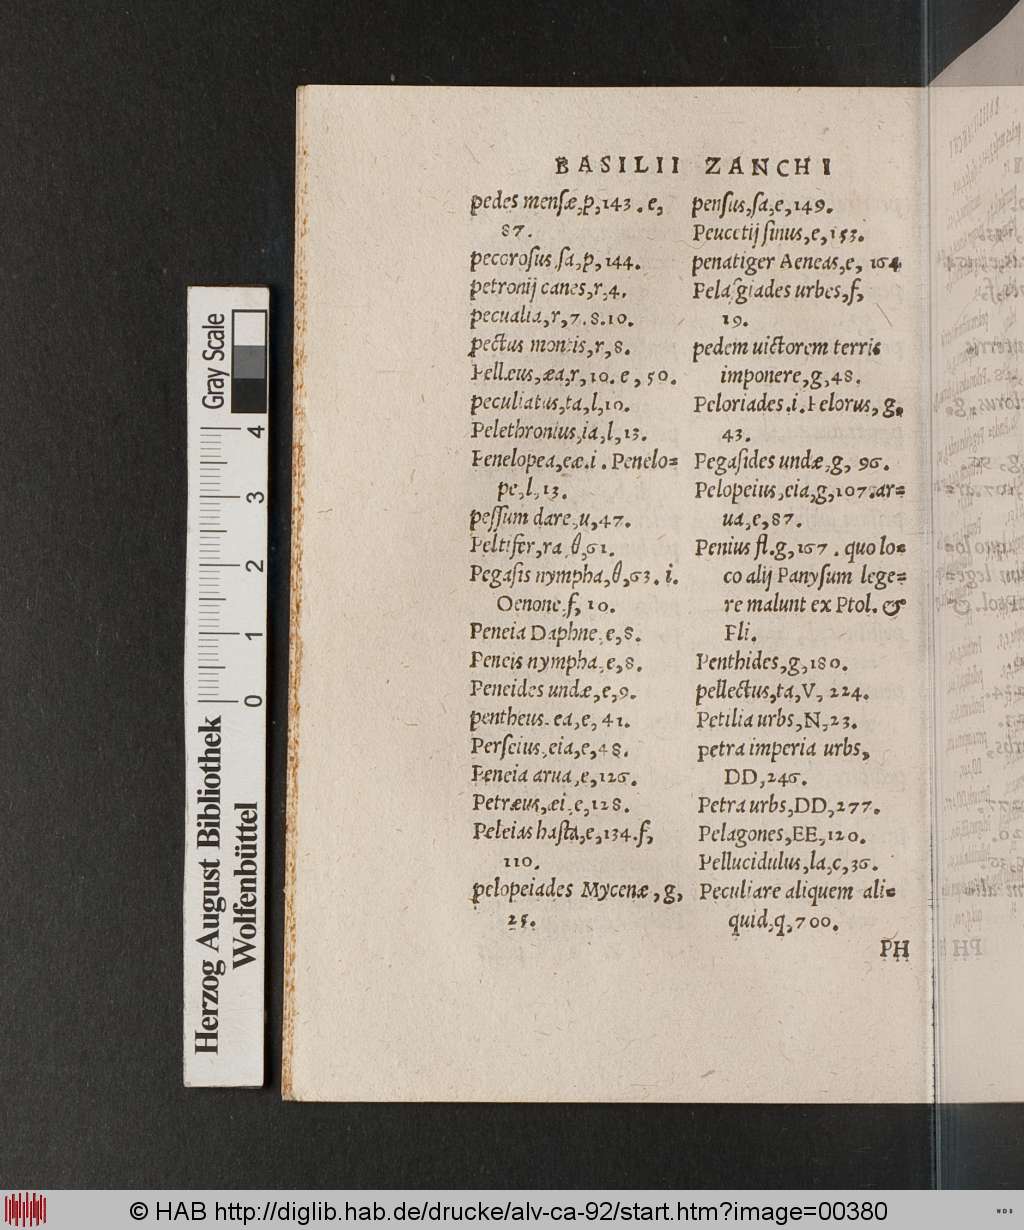 BASILII ZANCHI
pedes mensæ, p, 143. e,
87.
pecorosus, sa, p, 144.
petronij canes, r, 4.
pecualia, r, 7. 8. 10.
pectus montis, r, 8.
Pellæus, æa, r, 10. e, 50.
peculiatus, ta, l, 10.
Pelethronius, ia, l, 13.
Penelopea, eæ. i. Penelo=
pe, l, 13.
pessum dare, u, 47.
Peltifer, ra, 61.
Pegasis nympha, 63. i.
Oenone. f, 10.
Peneia Daphne, e, 8.
Peneis nympha, e, 8.
Peneides undæ, e, 9.
pentheus. ea, e, 41.
Perseius, eia, e, 48.
Peneia arua, e, 126.
Petræus, æi, e, 128.
Peleias hasta, e, 134. f,
110.
pelopeiades Mycenæ, g,
25.
pensus, sa, e, 149.
Peucetij sinus, e, 153.
penatiger Aeneas, e, 164
Pelasgiades urbes, f,
19.
pedem uictorem terris
imponere, g, 48.
Peloriades. i. Pelorus, g,
43.
Pegasides undæ, g, 96.
Pelopeius, eia, g, 107. ar=
ua, e, 87.
Penius fl. g, 167. quo lo=
co alij Panysum lege=
re malunt ex Ptol. &
Pli.
Penthides, g, 180.
pellectus, ta, V, 224.
Petilia urbs, N, 23.
petra imperia urbs,
DD, 246.
Petra urbs, DD, 277.
Pelagones, EE, 120.
Pellucidulus, la, c, 36.
Peculiare aliquem ali=
quid, q, 700.
PH
Gray Scale
4
3
2
1
0
Herzog August Bibliothek
Wolfenbüttel
© HAB http://diglib.hab.de/drucke/alv-ca-92/start.htm?image=00380
WDB